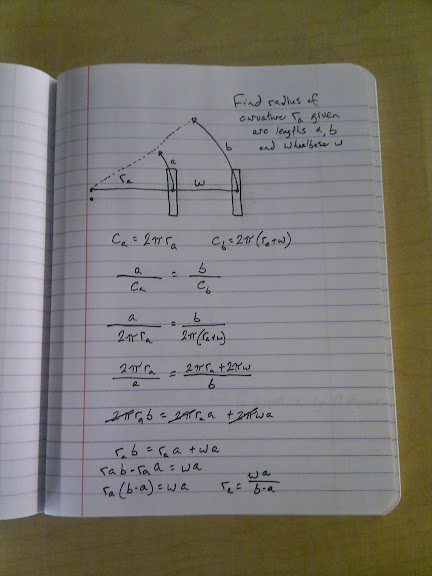 Find radius of
curvature rₐ given
arc lengths a, b
and wheelbase w
b
a
rₐ
w
Cₐ = 2πrₐ C_b = 2π(rₐ+w)
a/Cₐ = b/C_b
a/2πrₐ = b/2π(rₐ+w)
2πrₐ/a = 2πrₐ + 2πw/b
2πrₐb = 2πrₐa + 2πwa
rₐb = rₐa + wa
rₐb - rₐa = wa
rₐ(b-a) = wa rₐ = wa/b-a